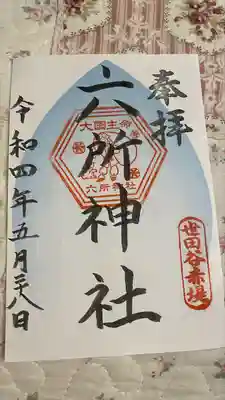 奉拝
六所神社
大國主命
六所神社
世田谷赤堤
令和四年五月二八日